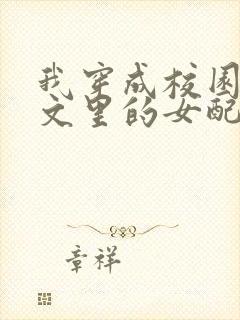 我穿成校园
文里的女配
章祥